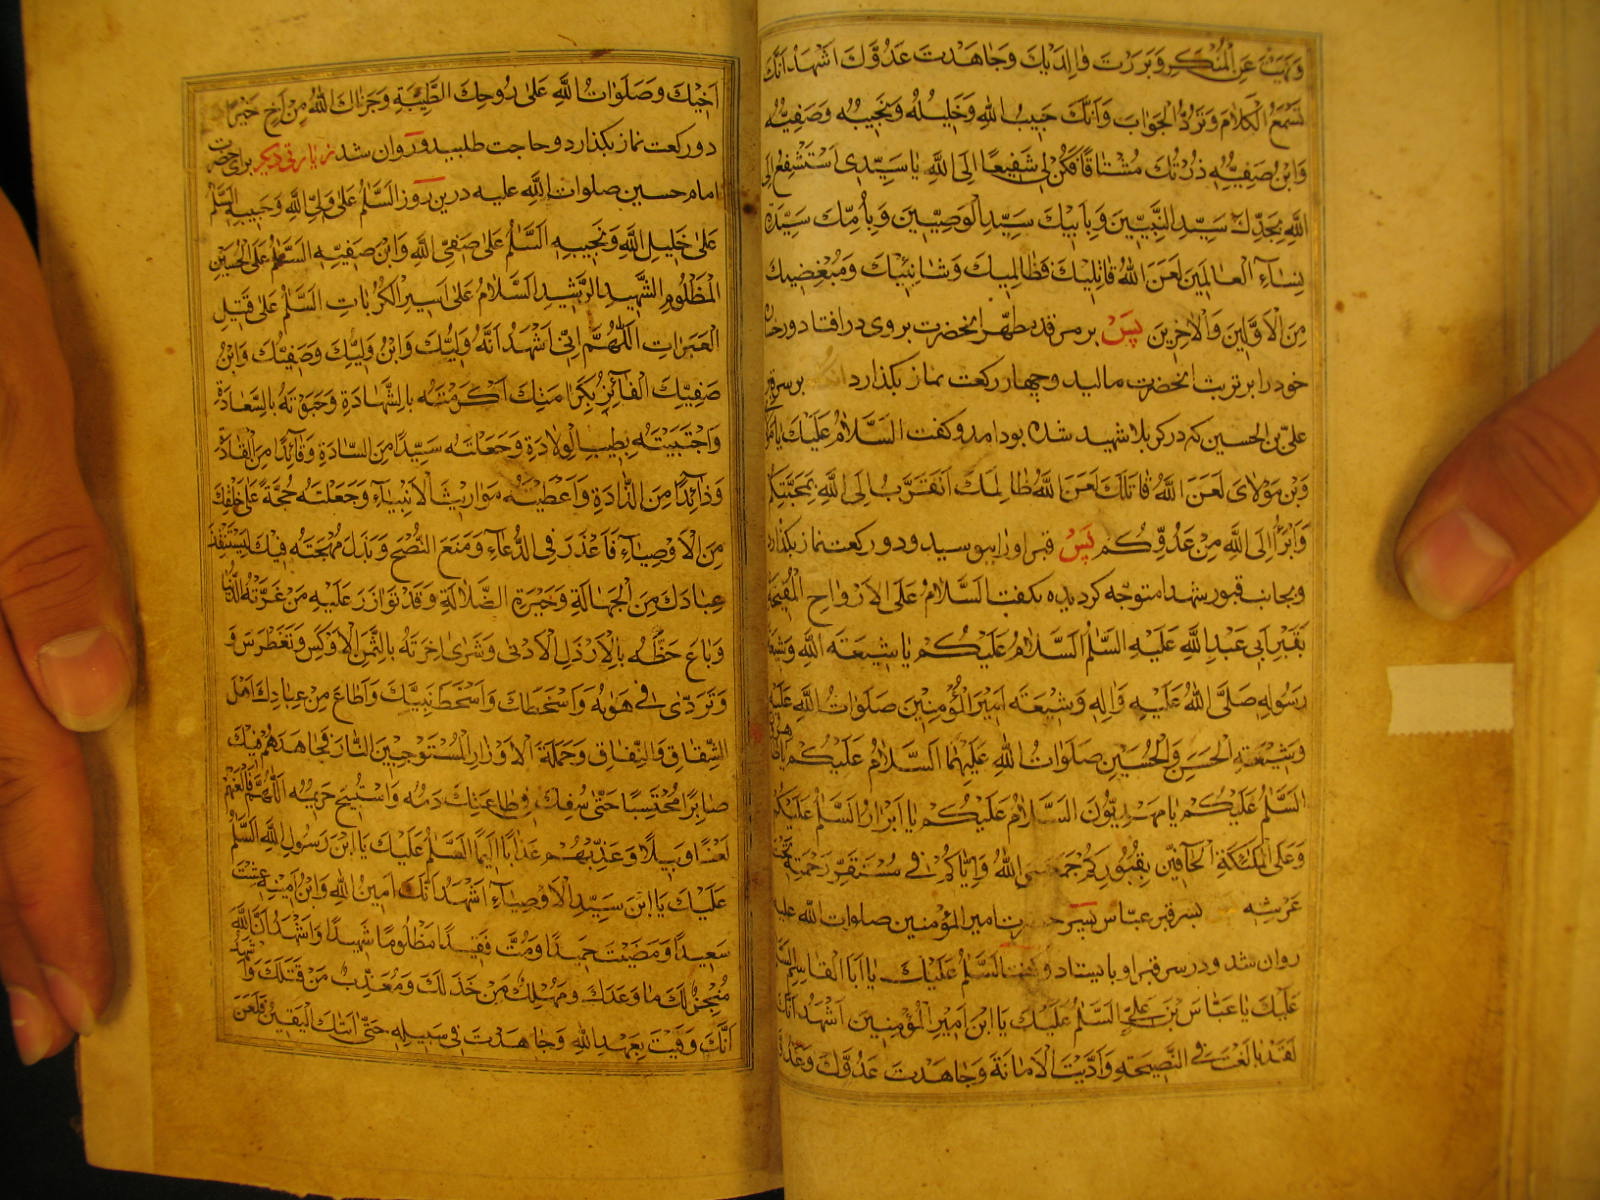 وَنَهَيْتَ عَنِ الْمُنْكَرِ وَبَرَرْتَ وَالِدَيْكَ وَجَاهَدْتَ عَدُوَّكَ اَشْهَدُ اَنَّكَ
تَسْمَعُ الْكَلَامَ وَتَرُدُّ الْجَوَابَ وَاَنَّكَ حَبِيبُ اللهِ وَخَلِيلُهُ وَنَجِيبُهُ وَصَفِيُّهُ
وَابْنُ صَفِيِّهِ زُرْتُكَ مُشْتَاقًا فَكُنْ لِي شَفِيعًا اِلَى اللهِ يَا سَيِّدِي اَسْتَشْفِعُ اِلَى
اللهِ بِجَدِّكَ سَيِّدِ النَّبِيِّينَ وَبِاَبِيكَ سَيِّدِ الْوَصِيِّينَ وَبِاُمِّكَ سَيِّدَةِ
نِسَاءِ الْعَالَمِينَ لَعَنَ اللهُ قَاتِلِيكَ وَظَالِمِيكَ وَشَانِئِيكَ وَمُبْغِضِيكَ
مِنَ الْاَوَّلِينَ وَالْاٰخِرِينَ پس بر مرقد مطهر انحضرت بر وی در افتاد و رخ
خود را بر تربت انحضرت مالید و چهار رکعت نماز بکذارد انکه بر سر قبر
علی بن الحسین که در کربلا شهید شده بود امد و کفت السَّلَامُ عَلَيْكَ يَا مَوْلَايَ
وَبْنَ مَوْلَايَ لَعَنَ اللهُ قَاتِلَكَ لَعَنَ اللهُ ظَالِمَكَ اَتَقَرَّبُ اِلَى اللهِ بِمَحَبَّتِكُمْ
وَاَبْرَأُ اِلَى اللهِ مِنْ عَدُوِّكُمْ پس قبر او را ببوسید و دو رکعت نماز بکذارد
و بجانب قبور شهدا متوجه کردیده بکفت السَّلَامُ عَلَى الْاَرْوَاحِ الْمُنِيخَةِ
بِقَبْرِ اَبِي عَبْدِ اللهِ عَلَيْهِ السَّلٰمُ اَلسَّلَامُ عَلَيْكُمْ يَا شِيعَةَ اللهِ وَشِيعَةَ
رَسُولِهِ صَلَّى اللهُ عَلَيْهِ وَاٰلِهِ وَشِيعَةَ اَمِيرِ الْمُؤْمِنِينَ صَلَوَاتُ اللهِ عَلَيْهِ
وَشِيعَةَ الْحَسَنِ وَالْحُسَيْنِ صَلَوَاتُ اللهِ عَلَيْهِمَا اَلسَّلَامُ عَلَيْكُمْ يَا طَاهِرُونَ
السَّلٰمُ عَلَيْكُمْ يَا مَهْدِيُّونَ السَّلَامُ عَلَيْكُمْ يَا اَبْرَارُ السَّلٰمُ عَلَيْكُمْ
وَعَلَى الْمَلٰئِكَةِ الْحَافِّينَ بِقُبُورِكُمْ جَمَعَنِي اللهُ وَاِيَّاكُمْ فِي مُسْتَقَرِّ رَحْمَتِهِ تَحْتَ
عَرْشِهِ بسر قبر عباس پسر حضرت امیر المؤمنین صلوات الله علیه
روان شد و در سر قبر او بایستاد و کفت السَّلٰمُ عَلَيْكَ يَا اَبَا الْقَاسِمِ السَّلٰمُ
عَلَيْكَ يَا عَبَّاسَ بْنَ عَلِيٍّ السَّلٰمُ عَلَيْكَ يَا ابْنَ اَمِيرِ الْمُؤْمِنِينَ اَشْهَدُ اَنَّكَ
لَقَدْ بَالَغْتَ فِي النَّصِيحَةِ وَاَدَّيْتَ الْاَمَانَةَ وَجَاهَدْتَ عَدُوَّكَ وَعَدُوَّ
اَخِيكَ وَصَلَوَاتُ اللهِ عَلٰى رُوحِكَ الطَّيِّبَةِ وَجَزَاكَ اللهُ مِنْ اَخٍ خَيْرًا
دو رکعت نماز بکذارد و حاجت طلبید و روان شد زیارتی دیکر برای حضرت
امام حسین صلوات الله علیه درین روز السَّلٰمُ عَلٰى وَلِيِّ اللهِ وَحَبِيبِهِ السَّلٰمُ
عَلٰى خَلِيلِ اللهِ وَنَجِيبِهِ اَلسَّلٰمُ عَلٰى صَفِيِّ اللهِ وَابْنِ صَفِيِّهِ السَّلٰمُ عَلَى الْحُسَيْنِ
الْمَظْلُومِ الشَّهِيدِ الرَّشِيدِ السَّلَامُ عَلٰى اَسِيرِ الْكُرُبَاتِ السَّلٰمُ عَلٰى قَتِيلِ
الْعَبَرَاتِ اَللّٰهُمَّ اِنِّي اَشْهَدُ اَنَّهُ وَلِيُّكَ وَابْنُ وَلِيِّكَ وَصَفِيُّكَ وَابْنُ
صَفِيِّكَ الْفَائِزُ بِكَرَامَتِكَ اَكْرَمْتَهُ بِالشَّهَادَةِ وَحَبَوْتَهُ بِالسَّعَادَةِ
وَاجْتَبَيْتَهُ بِطِيبِ الْوِلَادَةِ وَجَعَلْتَهُ سَيِّدًا مِنَ السَّادَةِ وَقَائِدًا مِنَ الْقَادَةِ
وَذَائِدًا مِنَ الذَّادَةِ وَاَعْطَيْتَهُ مَوَارِيثَ الْاَنْبِيَاءِ وَجَعَلْتَهُ حُجَّةً عَلٰى خَلْقِكَ
مِنَ الْاَوْصِيَاءِ فَاَعْذَرَ فِي الدُّعَاءِ وَمَنَعَ النُّصْحَ وَبَذَلَ مُهْجَتَهُ فِيكَ لِيَسْتَنْقِذَ
عِبَادَكَ مِنَ الْجَهَالَةِ وَحَيْرَةِ الضَّلَالَةِ وَقَدْ تَوَازَرَ عَلَيْهِ مَنْ غَرَّتْهُ الدُّنْيَا
وَبَاعَ حَظَّهُ بِالْاَرْذَلِ الْاَدْنٰى وَشَرٰى اٰخِرَتَهُ بِالثَّمَنِ الْاَوْكَسِ وَتَغَطْرَسَ وَ
وَتَرَدّٰى فِي هَوَاهُ وَاَسْخَطَكَ وَاَسْخَطَ نَبِيَّكَ وَاَطَاعَ مِنْ عِبَادِكَ اَهْلَ
الشِّقَاقِ وَالنِّفَاقِ وَحَمَلَةَ الْاَوْزَارِ الْمُسْتَوْجِبِينَ النَّارَ فَجَاهَدَهُمْ فِيكَ
صَابِرًا مُحْتَسِبًا حَتّٰى سُفِكَ فِي طَاعَتِكَ دَمُهُ وَاسْتُبِيحَ حَرِيمُهُ اَللّٰهُمَّ فَالْعَنْهُمْ
لَعْنًا وَبِيلًا وَعَذِّبْهُمْ عَذَابًا اَلِيمًا اَلسَّلٰمُ عَلَيْكَ يَا ابْنَ رَسُولِ اللهِ السَّلٰمُ
عَلَيْكَ يَا ابْنَ سَيِّدِ الْاَوْصِيَاءِ اَشْهَدُ اَنَّكَ اَمِينُ اللهِ وَابْنُ اَمِينِهِ عِشْتَ
سَعِيدًا وَمَضَيْتَ حَمِيدًا وَمُتَّ فَقِيدًا مَظْلُومًا شَهِيدًا وَاَشْهَدُ اَنَّ اللهَ
مُنْجِزٌ لَكَ مَا وَعَدَكَ وَمُهْلِكٌ مَنْ خَذَلَكَ وَمُعَذِّبٌ مَنْ قَتَلَكَ وَاَشْهَدُ
اَنَّكَ وَفَيْتَ بِعَهْدِ اللهِ وَجَاهَدْتَ فِي سَبِيلِهِ حَتّٰى اَتٰيكَ الْيَقِينُ فَلَعَنَ